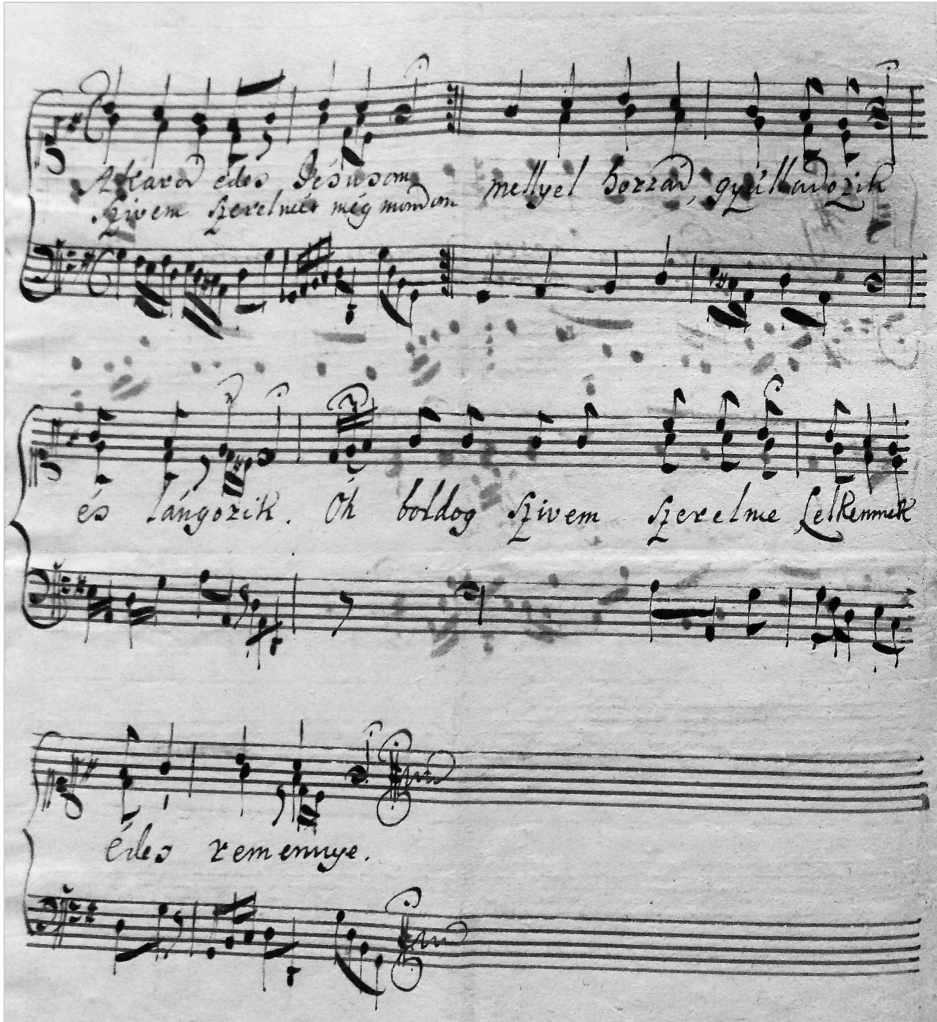 Akarod édes Jésusom mellyel hozzád, gyulladozik
szivem szerelmét meg mondom
és lángozik. Óh boldog szivem szerelme Lelkemnek
édes remennye.